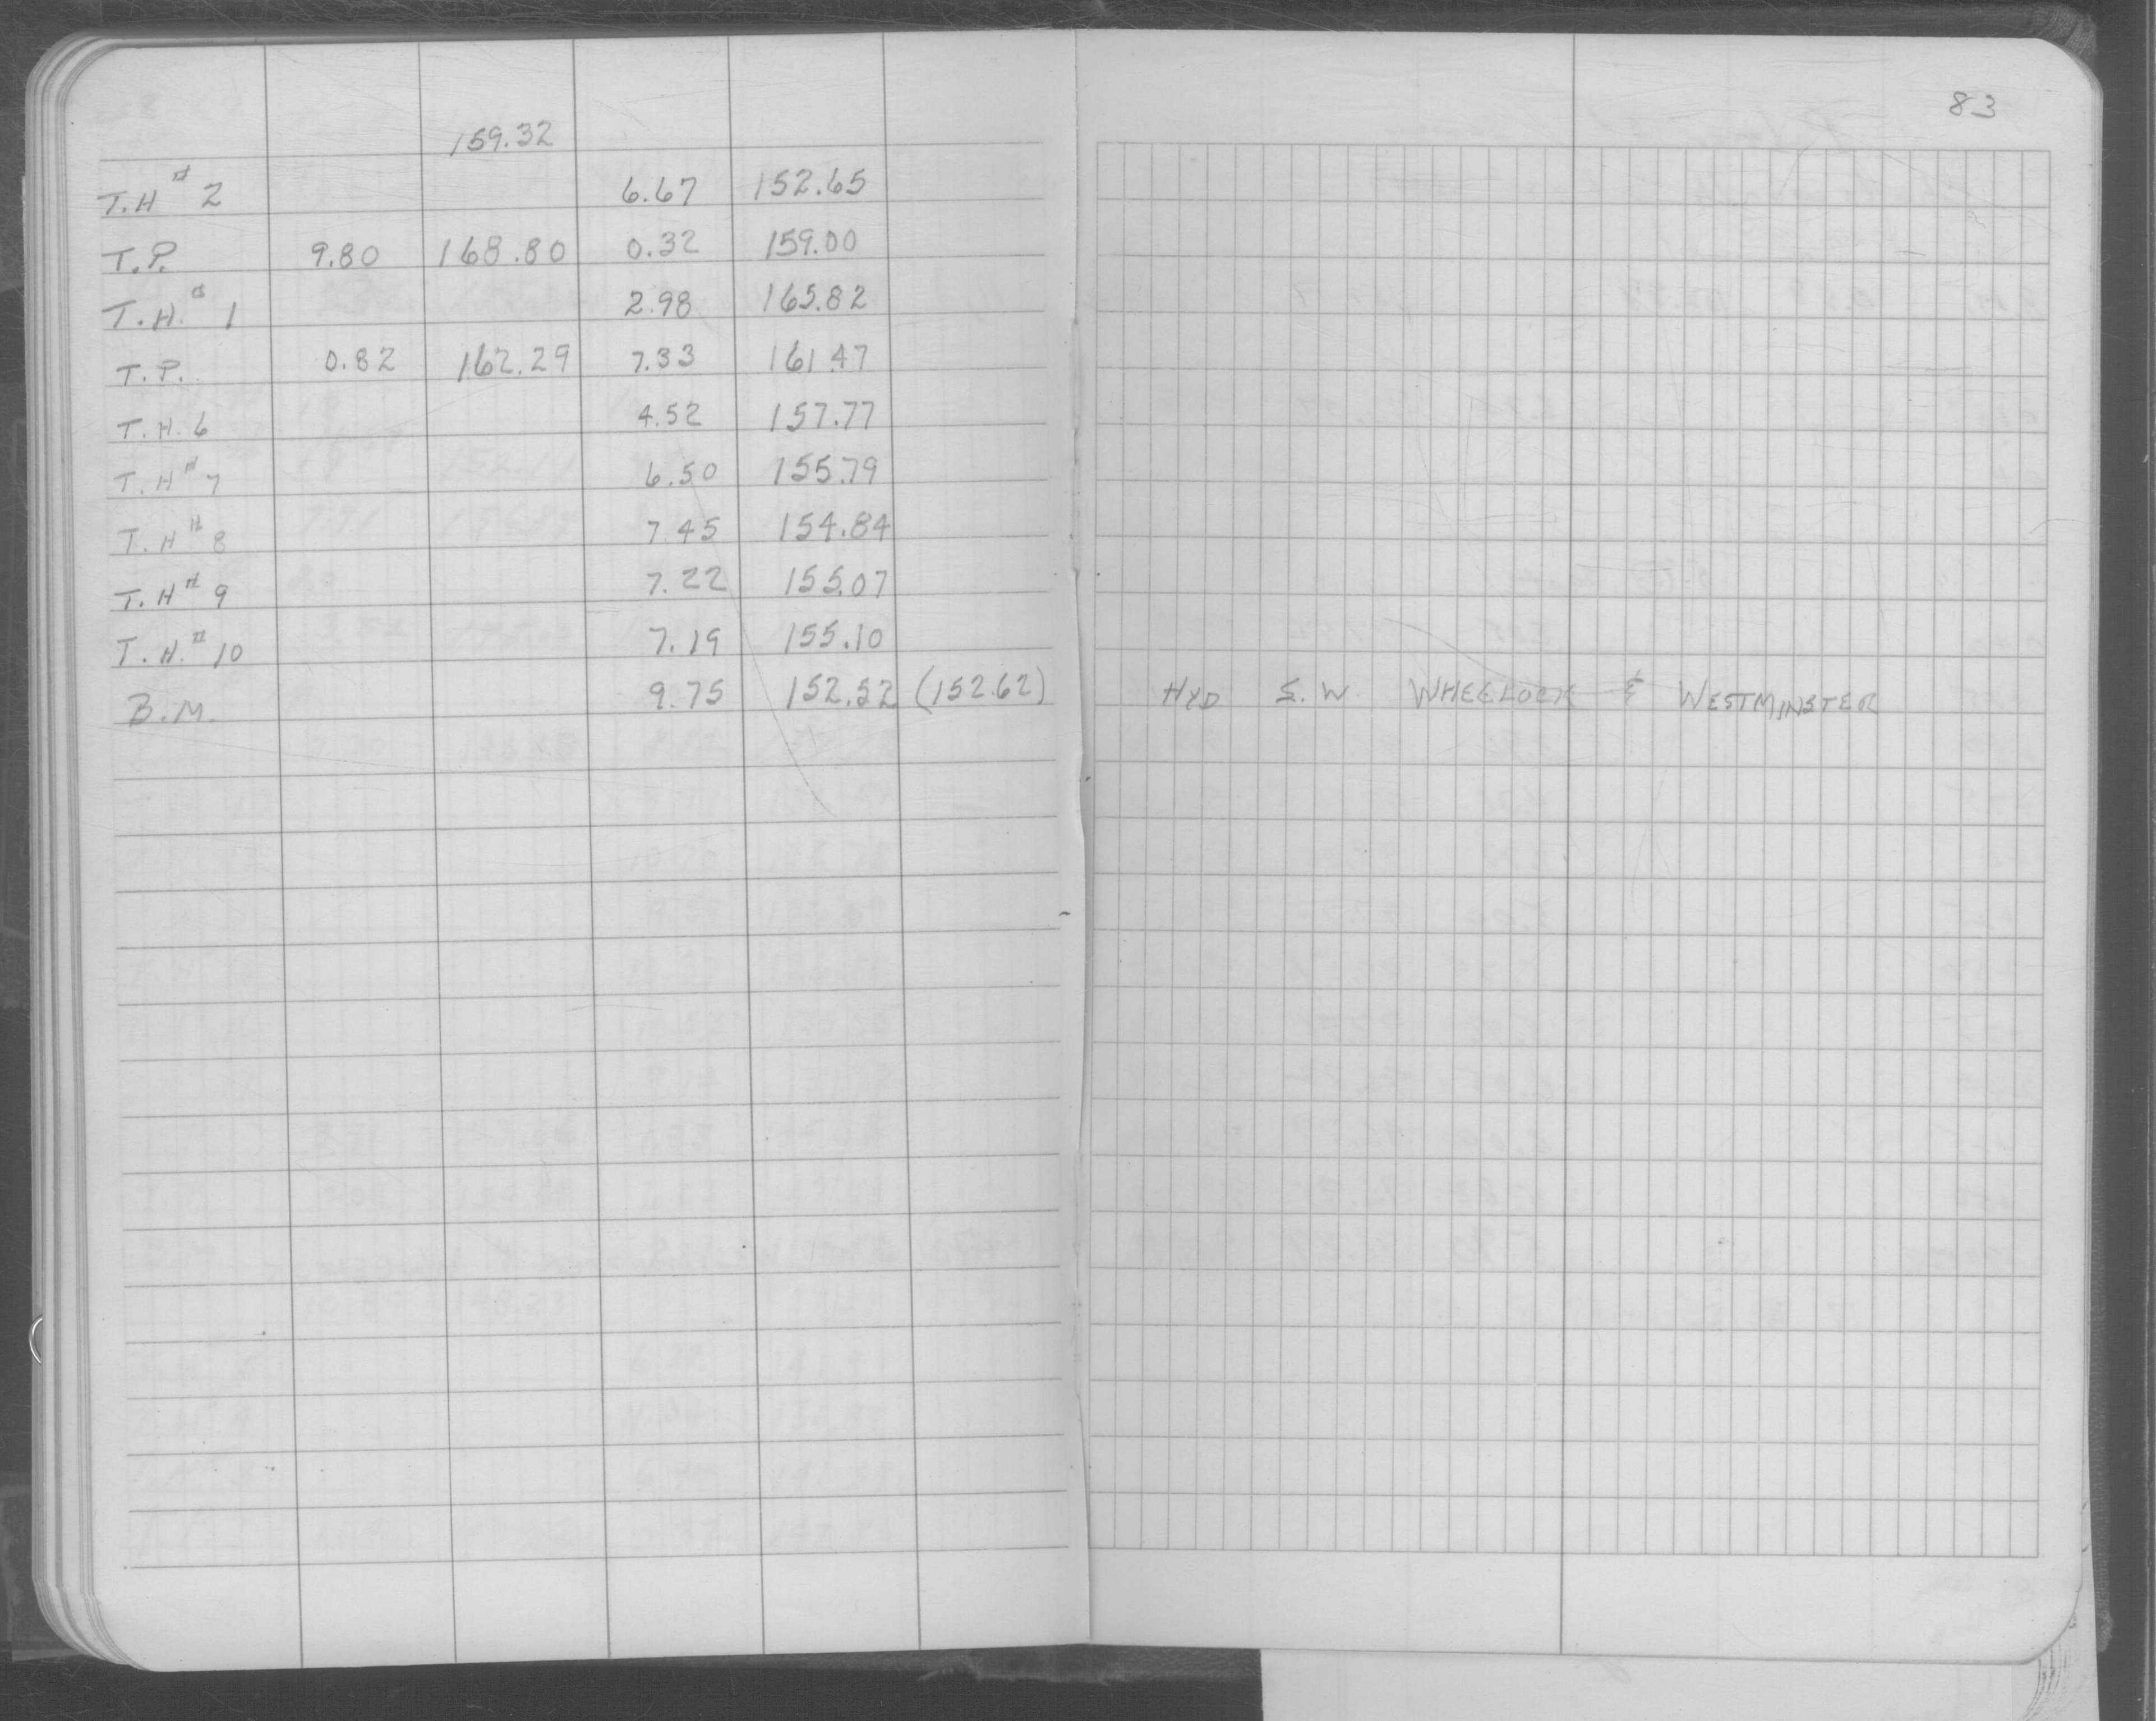 83
159.32
T.H # 2 6.67 152.65
T.P. 9.80 168.80 0.32 159.00
T.H. # 1 2.98 165.82
T.P. 0.82 162.29 7.33 161.47
T.H. 6 4.52 157.77
T.H # 7 6.50 155.79
T.H # 8 7.45 154.84
T.H # 9 7.22 155.07
T.H. # 10 7.19 155.10
B.M. 9.75 152.52 (152.62) HYD S.W. WHEELOCK & WESTMINSTER